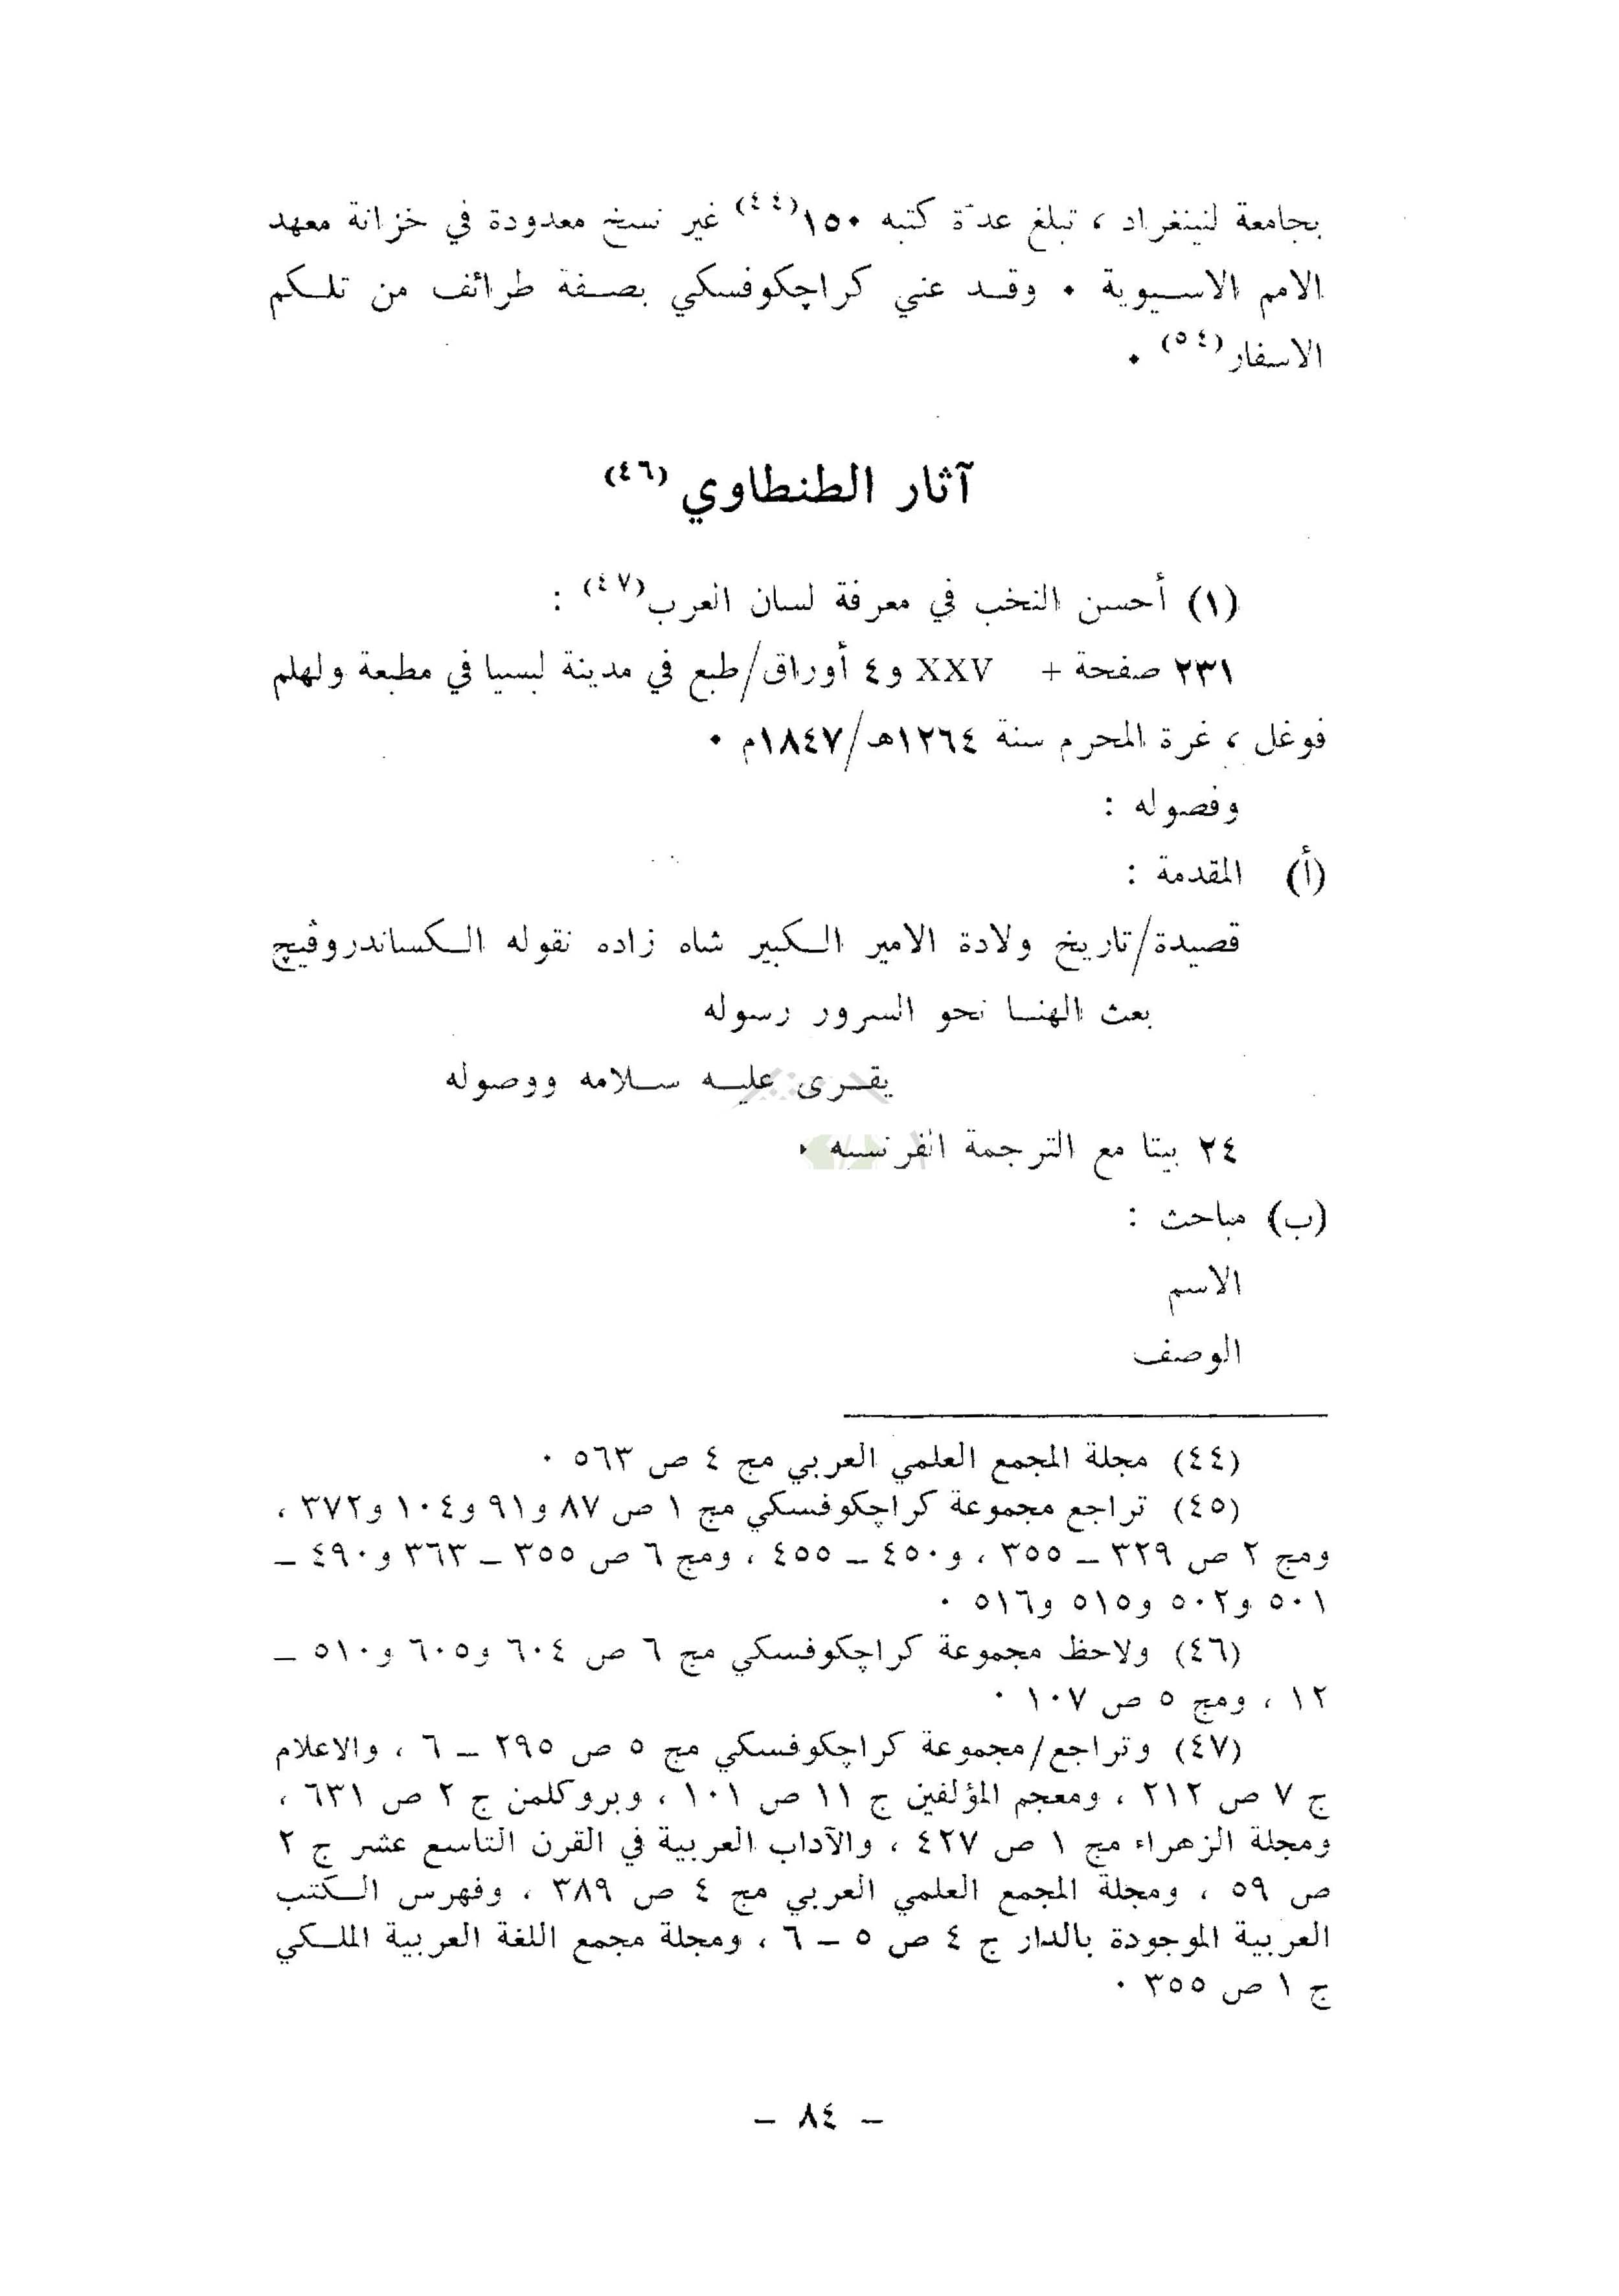 بجامعة لنينغراد ، تبلغ عدّة كتبه ١٥٠(٤٤) غير نسخ معدودة في خزانة معهد
الامم الاسيوية ٠ وقد عني كراچكوفسكي بصفة طرائف من تلكم
الاسفار(٥٤) ٠
آثار الطنطاوي (٤٦)
(١) أحسن النخب في معرفة لسان العرب(٤٧) :
٢٣١ صفحة + XXV و٤ أوراق/طبع في مدينة لبسيا في مطبعة ولهلم
فوغل ، غرة المحرم سنة ١٢٦٤هـ/١٨٤٧م ٠
وفصوله :
(أ) المقدمة :
قصيدة/تاريخ ولادة الامير الكبير شاه زاده نقوله الكساندروڤيچ
بعث الهنا نحو السرور رسوله
يقرى عليه سلامه ووصوله
٢٤ بيتا مع الترجمة الفرنسيه ٠
(ب) مباحث :
الاسم
الوصف
(٤٤) مجلة المجمع العلمي العربي مج ٤ ص ٥٦٣ ٠
(٤٥) تراجع مجموعة كراچكوفسكي مج ١ ص ٨٧ و٩١ و١٠٤ و٣٧٢ ،
ومج ٢ ص ٣٢٩ – ٣٥٥ ، و٤٥٠ – ٤٥٥ ، ومج ٦ ص ٣٥٥ – ٣٦٣ و٤٩٠ –
٥٠١ و٥٠٢ و٥١٥ و٥١٦ ٠
(٤٦) ولاحظ مجموعة كراچكوفسكي مج ٦ ص ٦٠٤ و٦٠٥ و٥١٠ –
١٢ ، ومج ٥ ص ١٠٧ ٠
(٤٧) وتراجع/مجموعة كراچكوفسكي مج ٥ ص ٢٩٥ – ٦ ، والاعلام
ج ٧ ص ٢١٢ ، ومعجم المؤلفين ج ١١ ص ١٠١ ، وبروكلمن ج ٢ ص ٦٣١ ،
ومجلة الزهراء مج ١ ص ٤٢٧ ، والآداب العربية في القرن التاسع عشر ج ٢
ص ٥٩ ، ومجلة المجمع العلمي العربي مج ٤ ص ٣٨٩ ، وفهرس الكتب
العربية الموجودة بالدار ج ٤ ص ٥ – ٦ ، ومجلة مجمع اللغة العربية الملكي
ج ١ ص ٣٥٥ ٠
– ٨٤ –